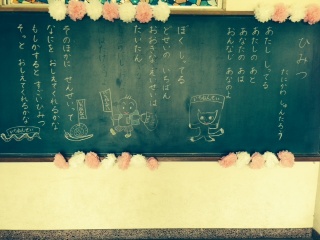 ひみつ
たにかわ しゅんたろう
あたし しってる
あたしの あと
あなたの あは
おんなじ あなのあ
ぼく しってる
どせいの いちばん
おおきな えいせいは
たいたん
そのほかに せんせいって
なにを おしえてくれるかな
もしかすると すごいひみつ
そっと おしえてくれるかな